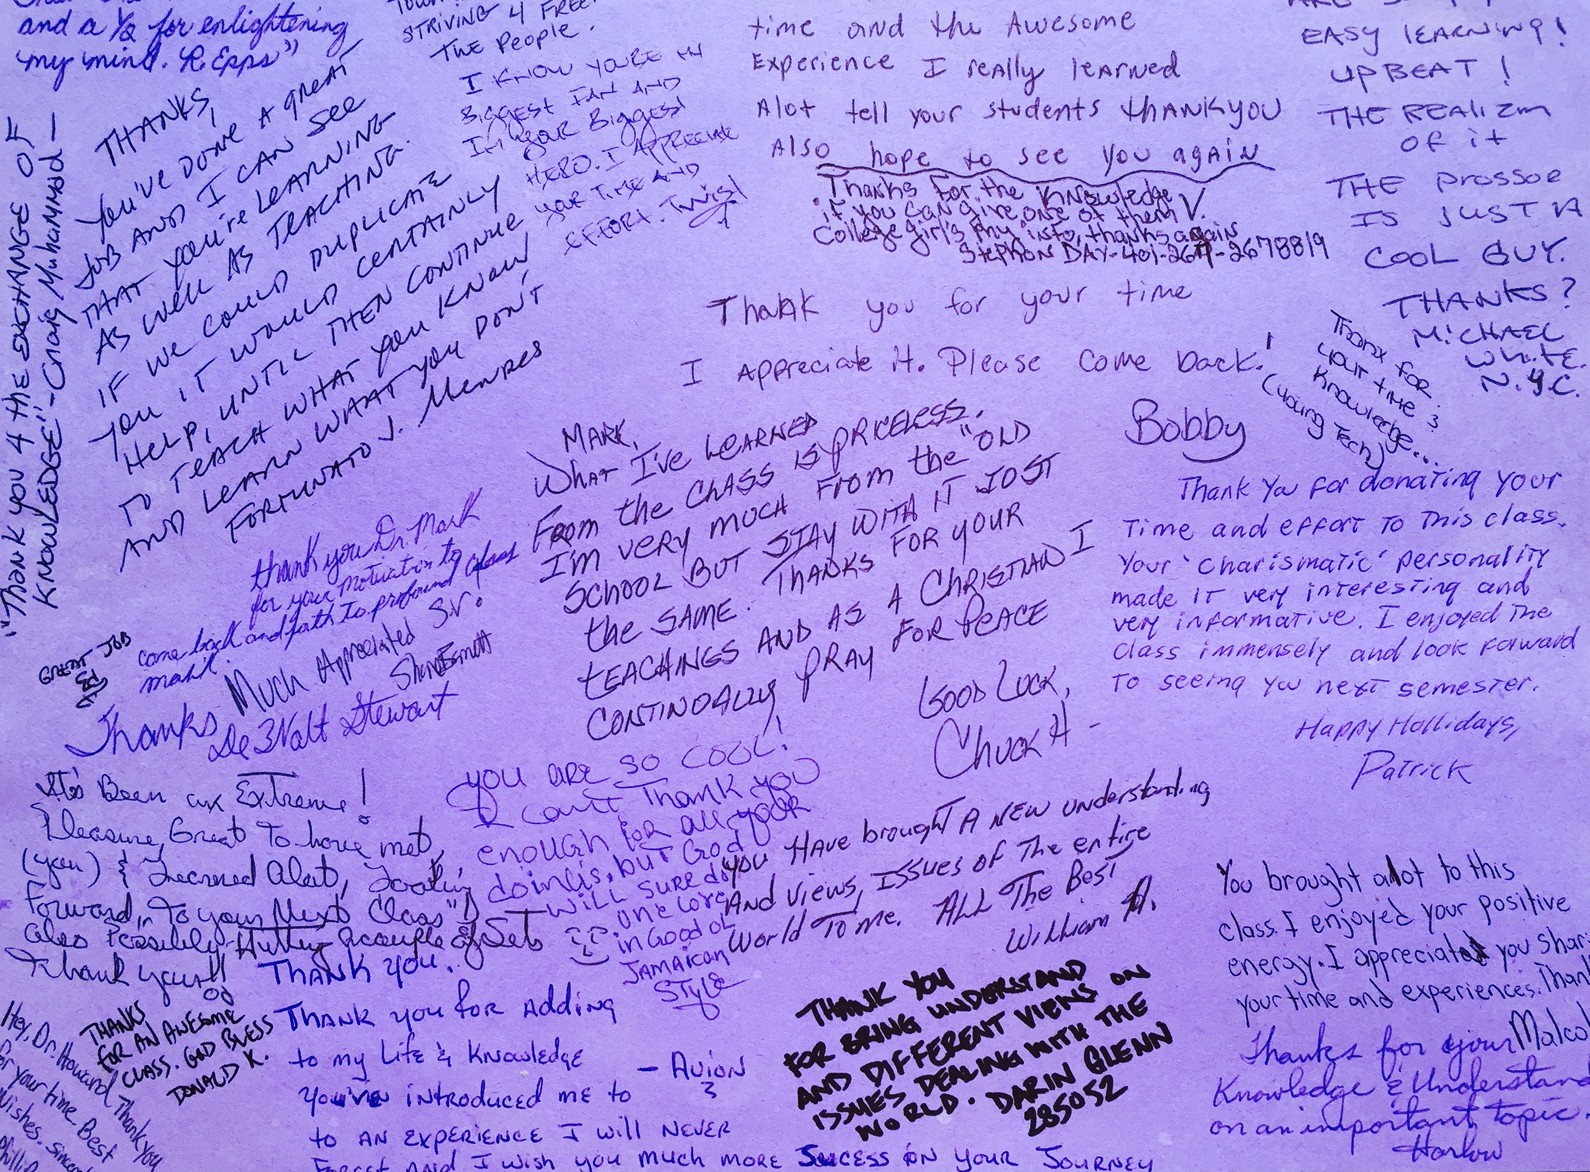 and a 1/2 for enlightening
my mind. R. Epps"
STRIVING 4 FREE
THE PEOPLE.
I KNOW YOU'RE MY
BIGGEST FAN AND
I'm YOUR BIGGEST
HERO. I APPRECIATE
YOUR TIME AND
EFFORT. Twist
time and the Awesome
Experience I really learned
Alot tell your students thankyou
Also hope to see you again
Thanks for the Knowledge
if you can give one of them
College girl's my info, thanks again
Stephon DAY-401-267-2678819
EASY LEARNING!
UPBEAT!
THE REALIZM
OF it
THE prossor
IS JUST A
COOL GUY.
THANKS?
MICHAEL
WHITE.
N.Y.C.
"Thank you 4 the EXCHANGE OF
KNOWLEDGE" - Craig Muhammad -
THANKS,
YOU'VE DONE A great
JOB AND I CAN SEE
THAT YOU'RE LEARNING
AS WELL AS TEACHING.
IF WE COULD DUPLICATE
YOU IT WOULD CERTAINLY
HELP, UNTIL THEN CONTINUE
TO TEACH WHAT YOU KNOW
AND LEARN WHAT YOU DON'T
FORTUNATO J. Menres
Thank you for your time
I Appreciate it. Please come back!
Bobby
Thank for
your time &
Knowledge...
(Young Tech)
MARK,
What I'VE LEARNED
From the CLASS IS PRICELESS.
I'M VERY MUCH From the "OLD
SCHOOL BUT STAY WITH IT JUST
the SAME. THANKS FOR YOUR
TEACHINGS AND AS A CHRISTIAN I
CONTINUALLY PRAY FOR PEACE
GOOD LUCK,
Chuck H -
Thank You for donating your
Time and effort To This class.
Your 'Charismatic' personality
made IT very interesting and
very informative. I enjoyed The
Class immensely and look forward
To seeing you next semester.
Happy Hollidays,
Patrick
thank you Dr. Mark
for your motivation to
come back and path to profound
Much Appreciated Sr.
GREAT JOB
Thanks
De3Valt Stewart
It's Been an Extreme!
Pleasure, Great To have met,
(you) & Learned Alot, Looking
Forward, "To your Next Class"
also Possibly Hitting A couple of Sets
Thank you!!
YOU ARE SO COOL!
I can't Thank You
enough for all your
doin(s, but God
will sure do
one love
in Good ol
JAMAICAN
STYle
You Have brought A New understanding
And views, Issues of The entire
World To me. ALL The Best
William A.
You brought alot to this
class. I enjoyed your positive
energy. I appreciated you shari
your time and experiences. Than
Malco
Thanks for your
Knowledge & Understand
on an important topic.
Harlow
THANKS
FOR AN AWESOME
CLASS. GOD BLESS
DONALD K.
Hey, Dr. Howard Thank you
for your time. Best
wishes. since
THANK YOU.
THANK you for Adding
to my Life & Knowledge
You've introduced me to
to AN EXPERIENCE I will NEVER
Forget AND I wish you much more Success ON YOUR JOURNEY
- Avion
THANK YOU
FOR BRING UNDERSTAND
AND DIFFERENT VIEWS ON
ISSUES DEALING WITH THE
WORLD. DARIN GLENN
285052